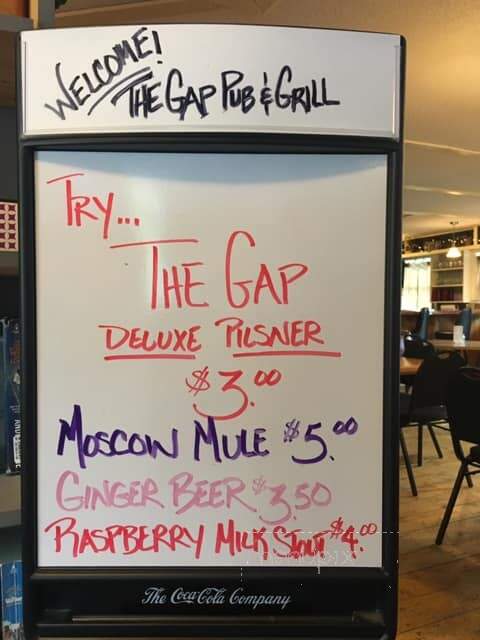 WELCOME!
THE GAP PUB & GRILL
TRY...
THE GAP
DELUXE PILSNER
$3.00
MOSCOW MULE $5.00
GINGER BEER $3.50
RASPBERRY MILK STOUT $4.00
The Coca-Cola Company